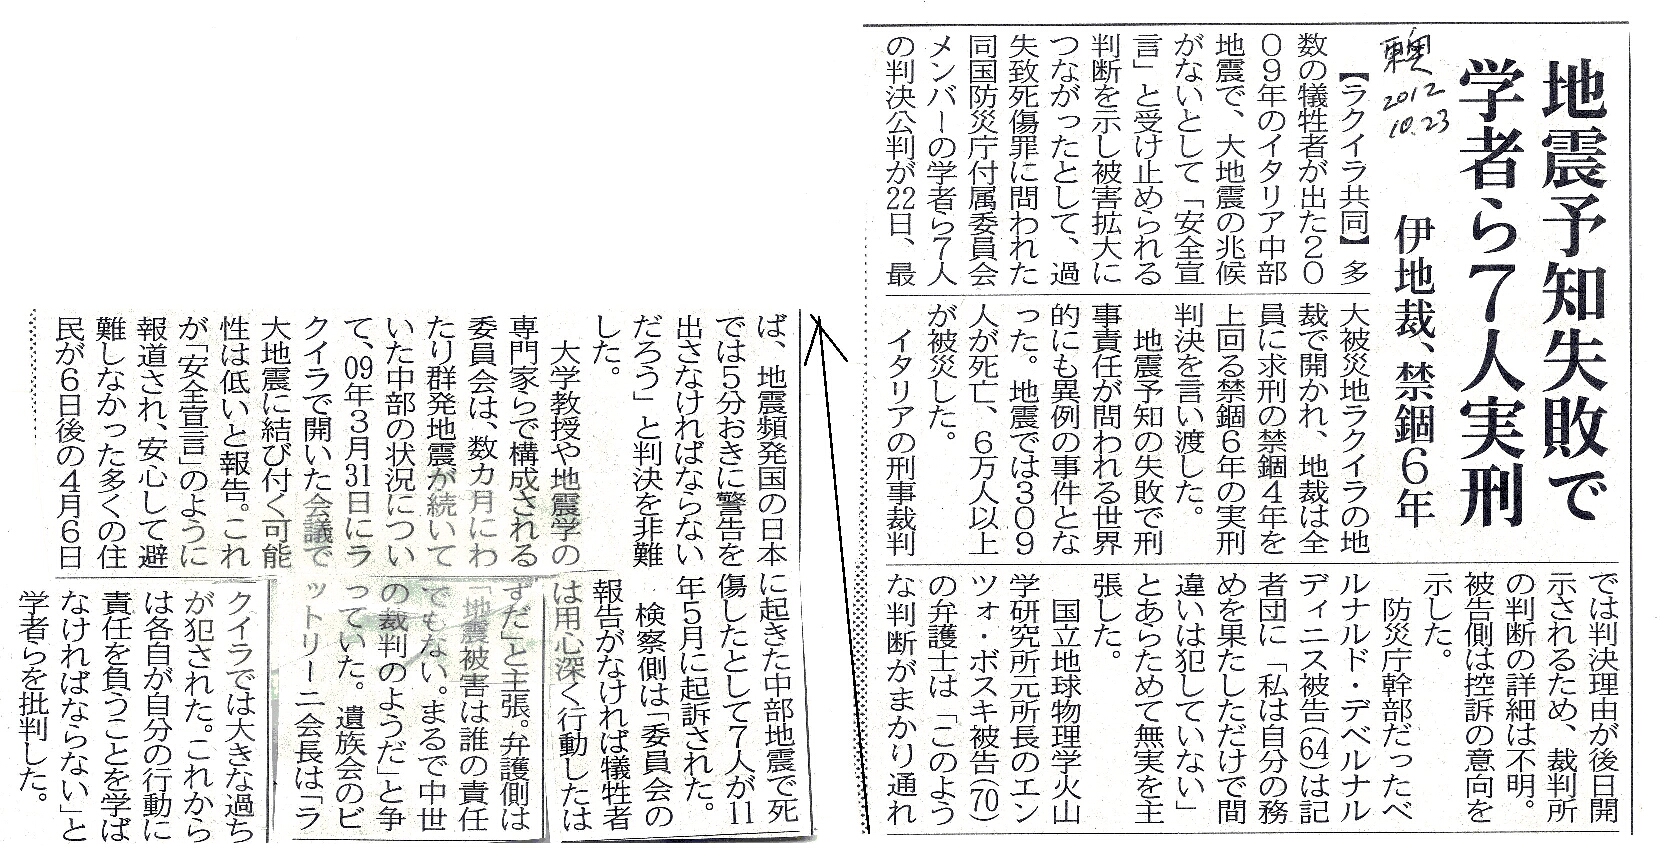 地震予知失敗で
学者ら7人実刑
伊地裁、禁錮6年
2012
10.23
【ラクイラ共同】多
数の犠牲者が出た20
09年のイタリア中部
地震で、大地震の兆候
がないとして「安全宣
言」と受け止められる
判断を示し被害拡大に
つながったとして、過
失致死傷罪に問われた
同国防災庁付属委員会
メンバーの学者ら7人
の判決公判が22日、最
大被災地ラクイラの地
裁で開かれ、地裁は全
員に求刑の禁錮4年を
上回る禁錮6年の実刑
判決を言い渡した。
地震予知の失敗で刑
事責任が問われる世界
的にも異例の事件とな
った。地震では309
人が死亡、6万人以上
が被災した。
イタリアの刑事裁判
では判決理由が後日開
示されるため、裁判所
の判断の詳細は不明。
被告側は控訴の意向を
示した。
防災庁幹部だったベ
ルナルド・デベルナル
ディニス被告(64)は記
者団に「私は自分の務
めを果たしただけで間
違いは犯していない」
とあらためて無実を主
張した。
国立地球物理学火山
学研究所元所長のエン
ツォ・ボスキ被告(70)
の弁護士は「このよう
な判断がまかり通れ
ば、地震頻発国の日本
では5分おきに警告を
出さなければならない
だろう」と判決を非難
した。
大学教授や地震学の
専門家らで構成される
委員会は、数カ月にわ
たり群発地震が続いて
いた中部の状況につい
て、09年3月31日にラ
クイラで開いた会議で
大地震に結び付く可能
性は低いと報告。これ
が「安全宣言」のように
報道され、安心して避
難しなかった多くの住
民が6日後の4月6日
に起きた中部地震で死
傷したとして7人が11
年5月に起訴された。
検察側は「委員会の
報告がなければ犠牲者
は用心深く行動したは
ずだ」と主張。弁護側は
「地震被害は誰の責任
でもない。まるで中世
の裁判のようだ」と争
っていた。遺族会のビ
ットリーニ会長は「ラ
クイラでは大きな過ち
が犯された。これから
は各自が自分の行動に
責任を負うことを学ば
なければならない」と
学者らを批判した。